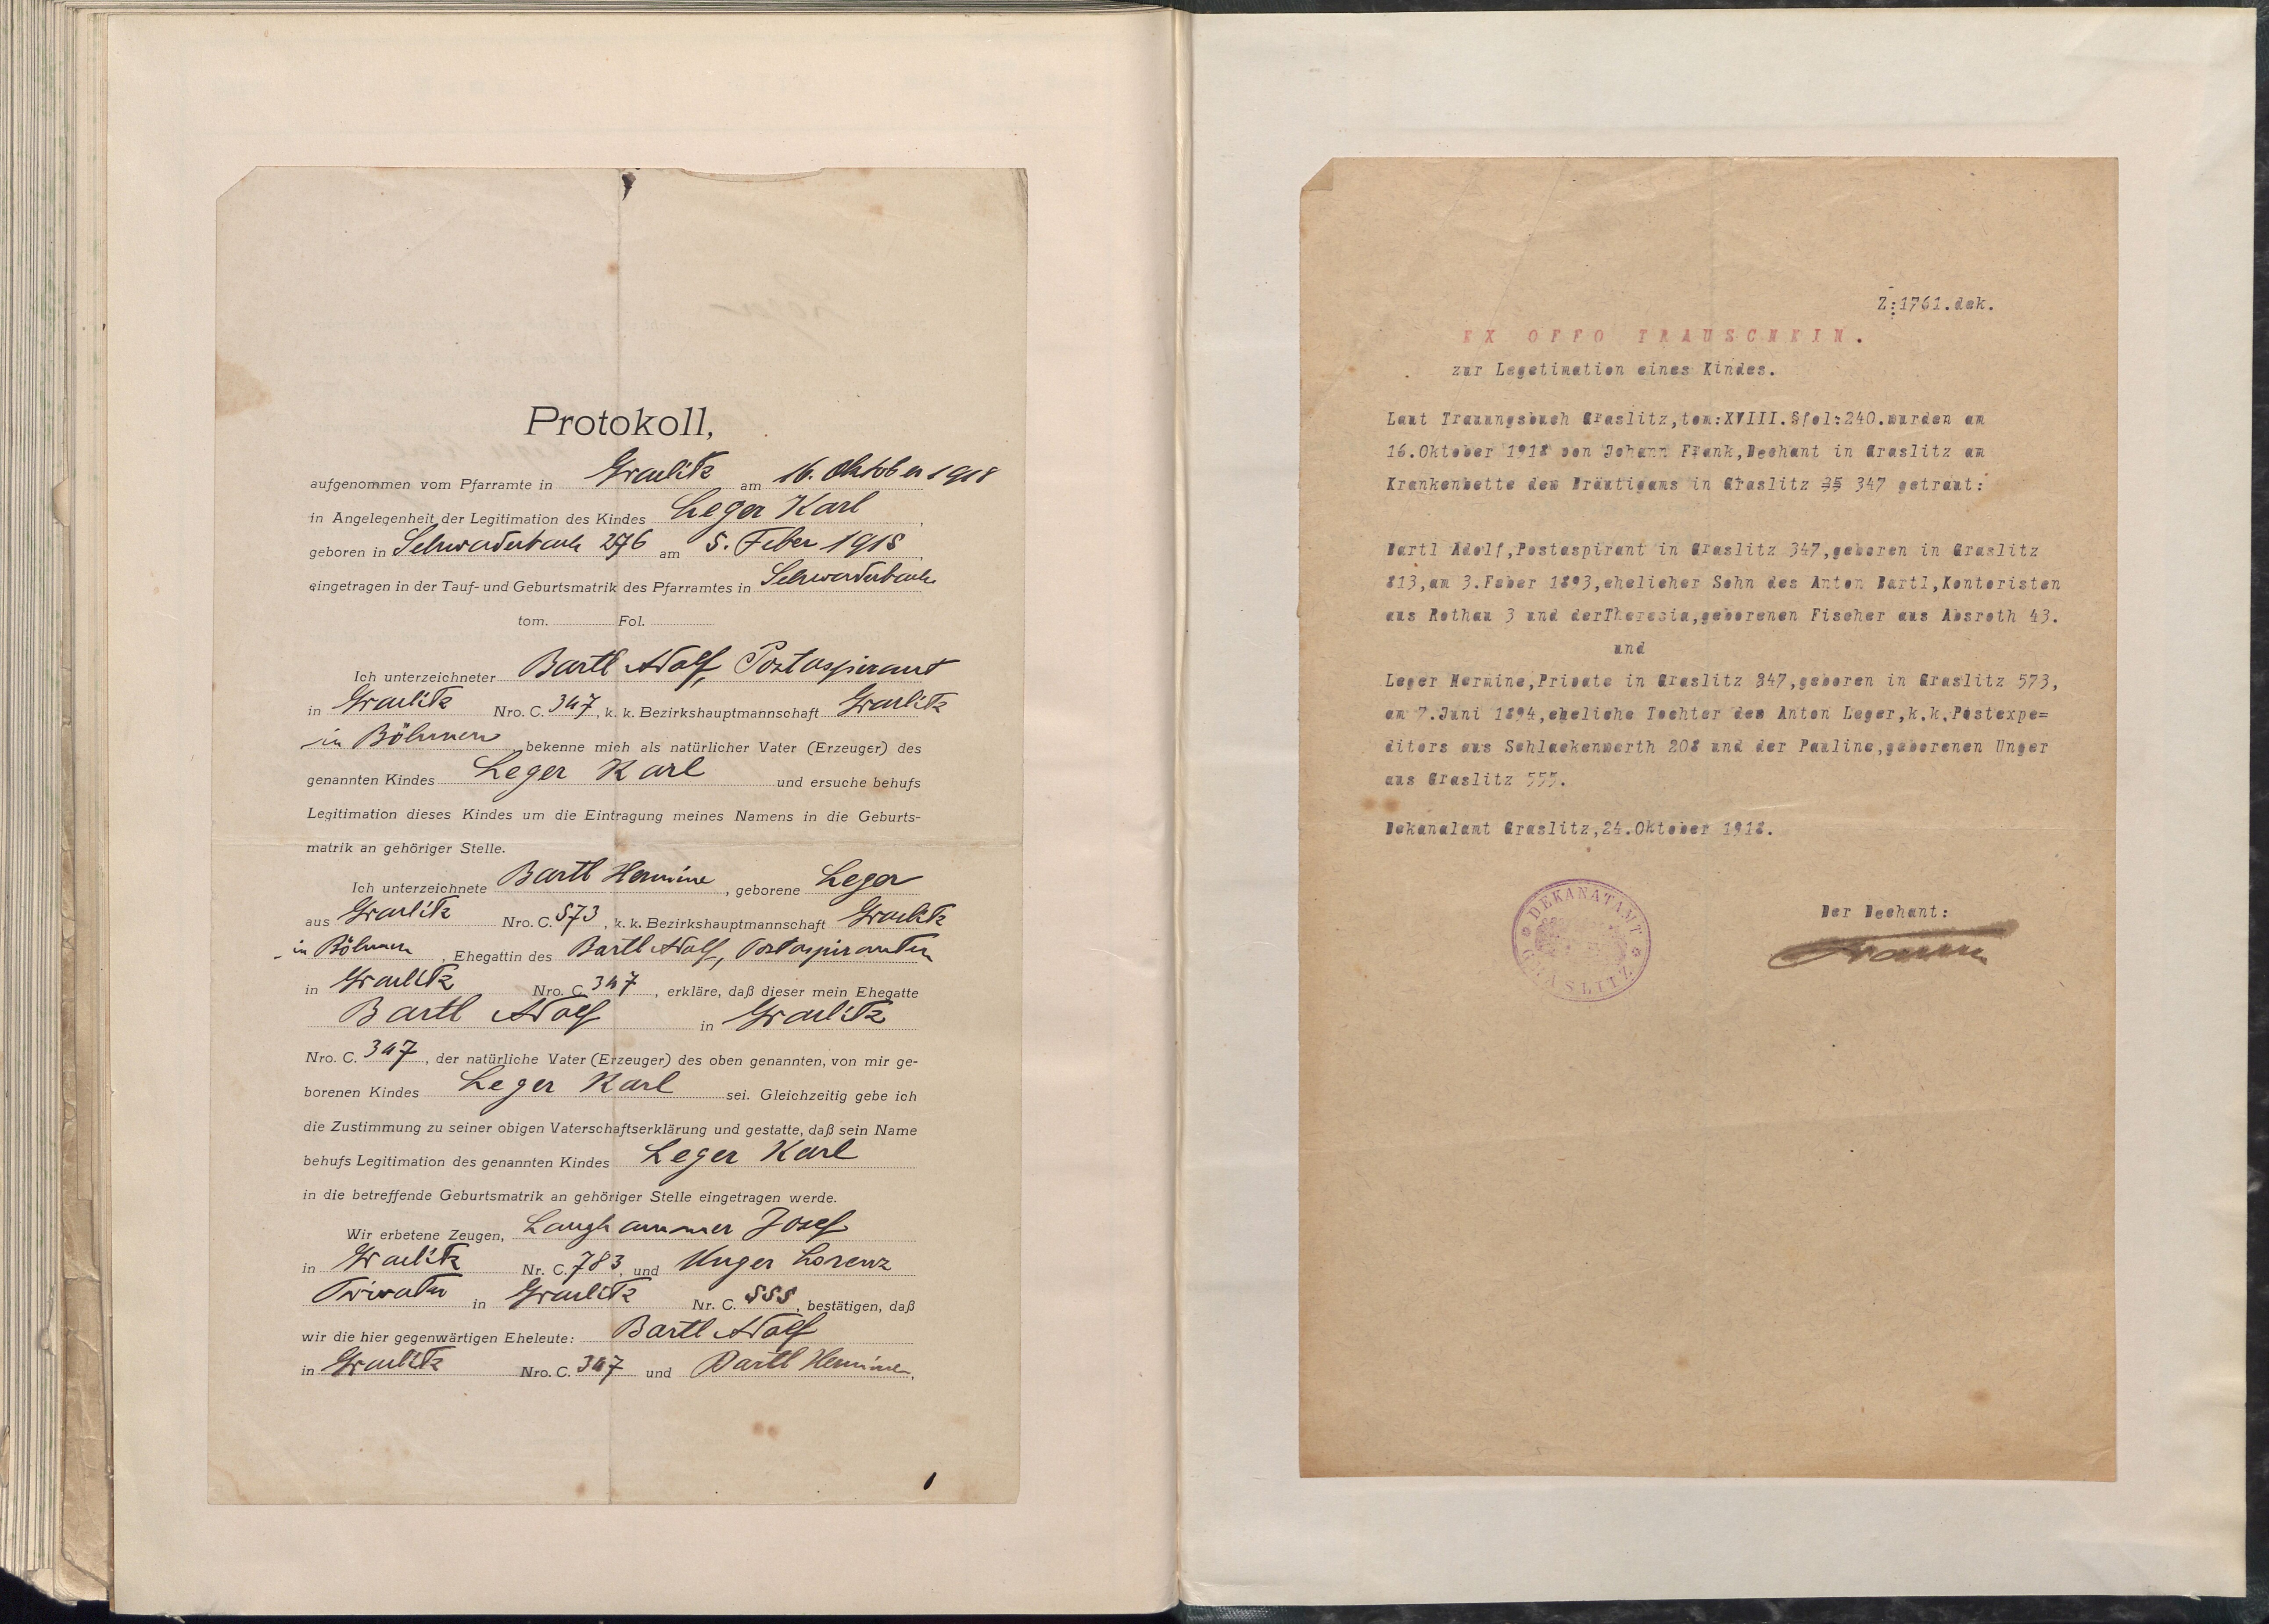 Protokoll,
aufgenommen vom Pfarramte in Graslitz am 16. Oktober 1918
in Angelegenheit der Legitimation des Kindes Leger Karl,
geboren in Schwaderbach 276 am 5. Feber 1918,
eingetragen in der Tauf- und Geburtsmatrik des Pfarramtes in Schwaderbach
tom. Fol.
Ich unterzeichneter Bartl Adolf, Postaspirant
in Graslitz Nro. C. 347, k. k. Bezirkshauptmannschaft Graslitz
in Böhmen bekenne mich als natürlicher Vater (Erzeuger) des
genannten Kindes Leger Karl und ersuche behufs
Legitimation dieses Kindes um die Eintragung meines Namens in die Geburts-
matrik an gehöriger Stelle.
Ich unterzeichnete Bartl Hermine, geborene Leger
aus Graslitz Nro. C. 573, k. k. Bezirkshauptmannschaft Graslitz
in Böhmen, Ehegattin des Bartl Adolf, Postaspiranten
in Graslitz Nro. C. 347, erkläre, daß dieser mein Ehegatte
Bartl Adolf in Graslitz
Nro. C. 347, der natürliche Vater (Erzeuger) des oben genannten, von mir ge-
borenen Kindes Leger Karl sei. Gleichzeitig gebe ich
die Zustimmung zu seiner obigen Vaterschaftserklärung und gestatte, daß sein Name
behufs Legitimation des genannten Kindes Leger Karl
in die betreffende Geburtsmatrik an gehöriger Stelle eingetragen werde.
Wir erbetene Zeugen, Langhammer Josef
in Graslitz Nr. C. 783, und Unger Lorenz
Privater in Graslitz Nr. C. 555, bestätigen, daß
wir die hier gegenwärtigen Eheleute: Bartl Adolf
in Graslitz Nro. C. 347 und Bartl Hermine,
Z:1761.dek.
EX OFFO TRAUSCHEIN.
zur Legetimation eines Kindes.
Laut Trauungsbuch Graslitz,tom:XVIII.§fol:240.wurden am
16.Oktober 1918 von Johann Frank,Dechant in Graslitz am
Krankenbette des Bräutigams in Graslitz 347 getraut:
Bartl Adolf,Postaspirant in Graslitz 347,geboren in Graslitz
813,am 3.Feber 1893,ehelicher Sohn des Anton Bartl,Kontoristen
aus Rothau 3 und derTheresia,geborenen Fischer aus Absroth 43.
und
Leger Hermine,Private in Graslitz 347,geboren in Graslitz 573,
am 7.Juni 1894,eheliche Tochter des Anton Leger,k.k.Postexpe=
ditors aus Schlackenwerth 208 und der Pauline,geborenen Unger
aus Graslitz 555.
Dekanalamt Graslitz,24.Oktober 1918.
DEKANATAMT GRASLITZ
Der Dechant: